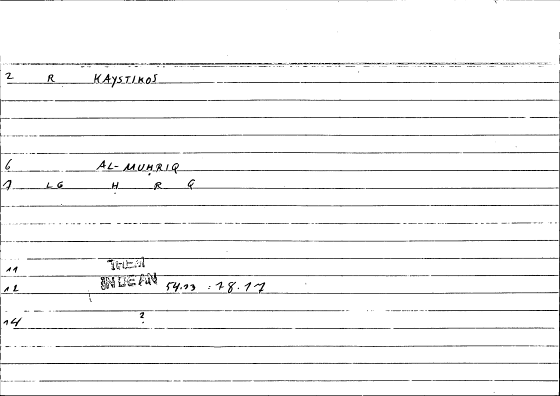 2 R KAYSTIKOS
6 AL-MUḤRIQ
7 LG Ḥ R Q
11 THEM
12 IN DE AN 54.23 : 78.17
14 ?